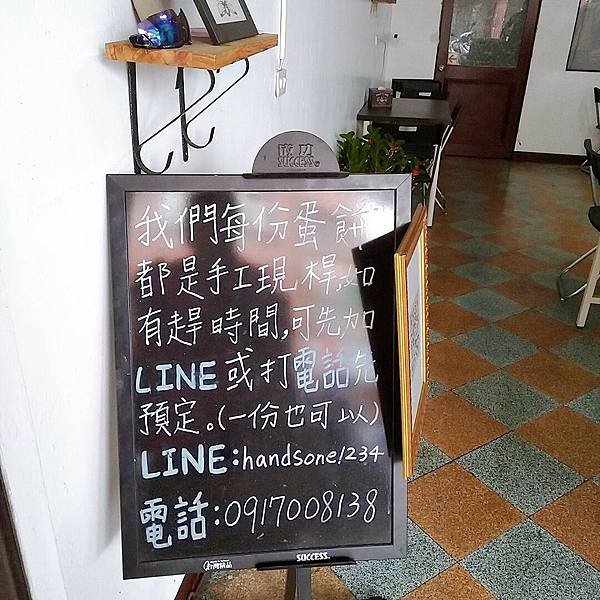 成功
SUCCESS®
我們每份蛋餅
都是手工現桿,如
有趕時間,可先加
LINE或打電話先
預定。(一份也可以)
LINE:handsone1234
電話:0917008138
SUCCESS®
台灣精品